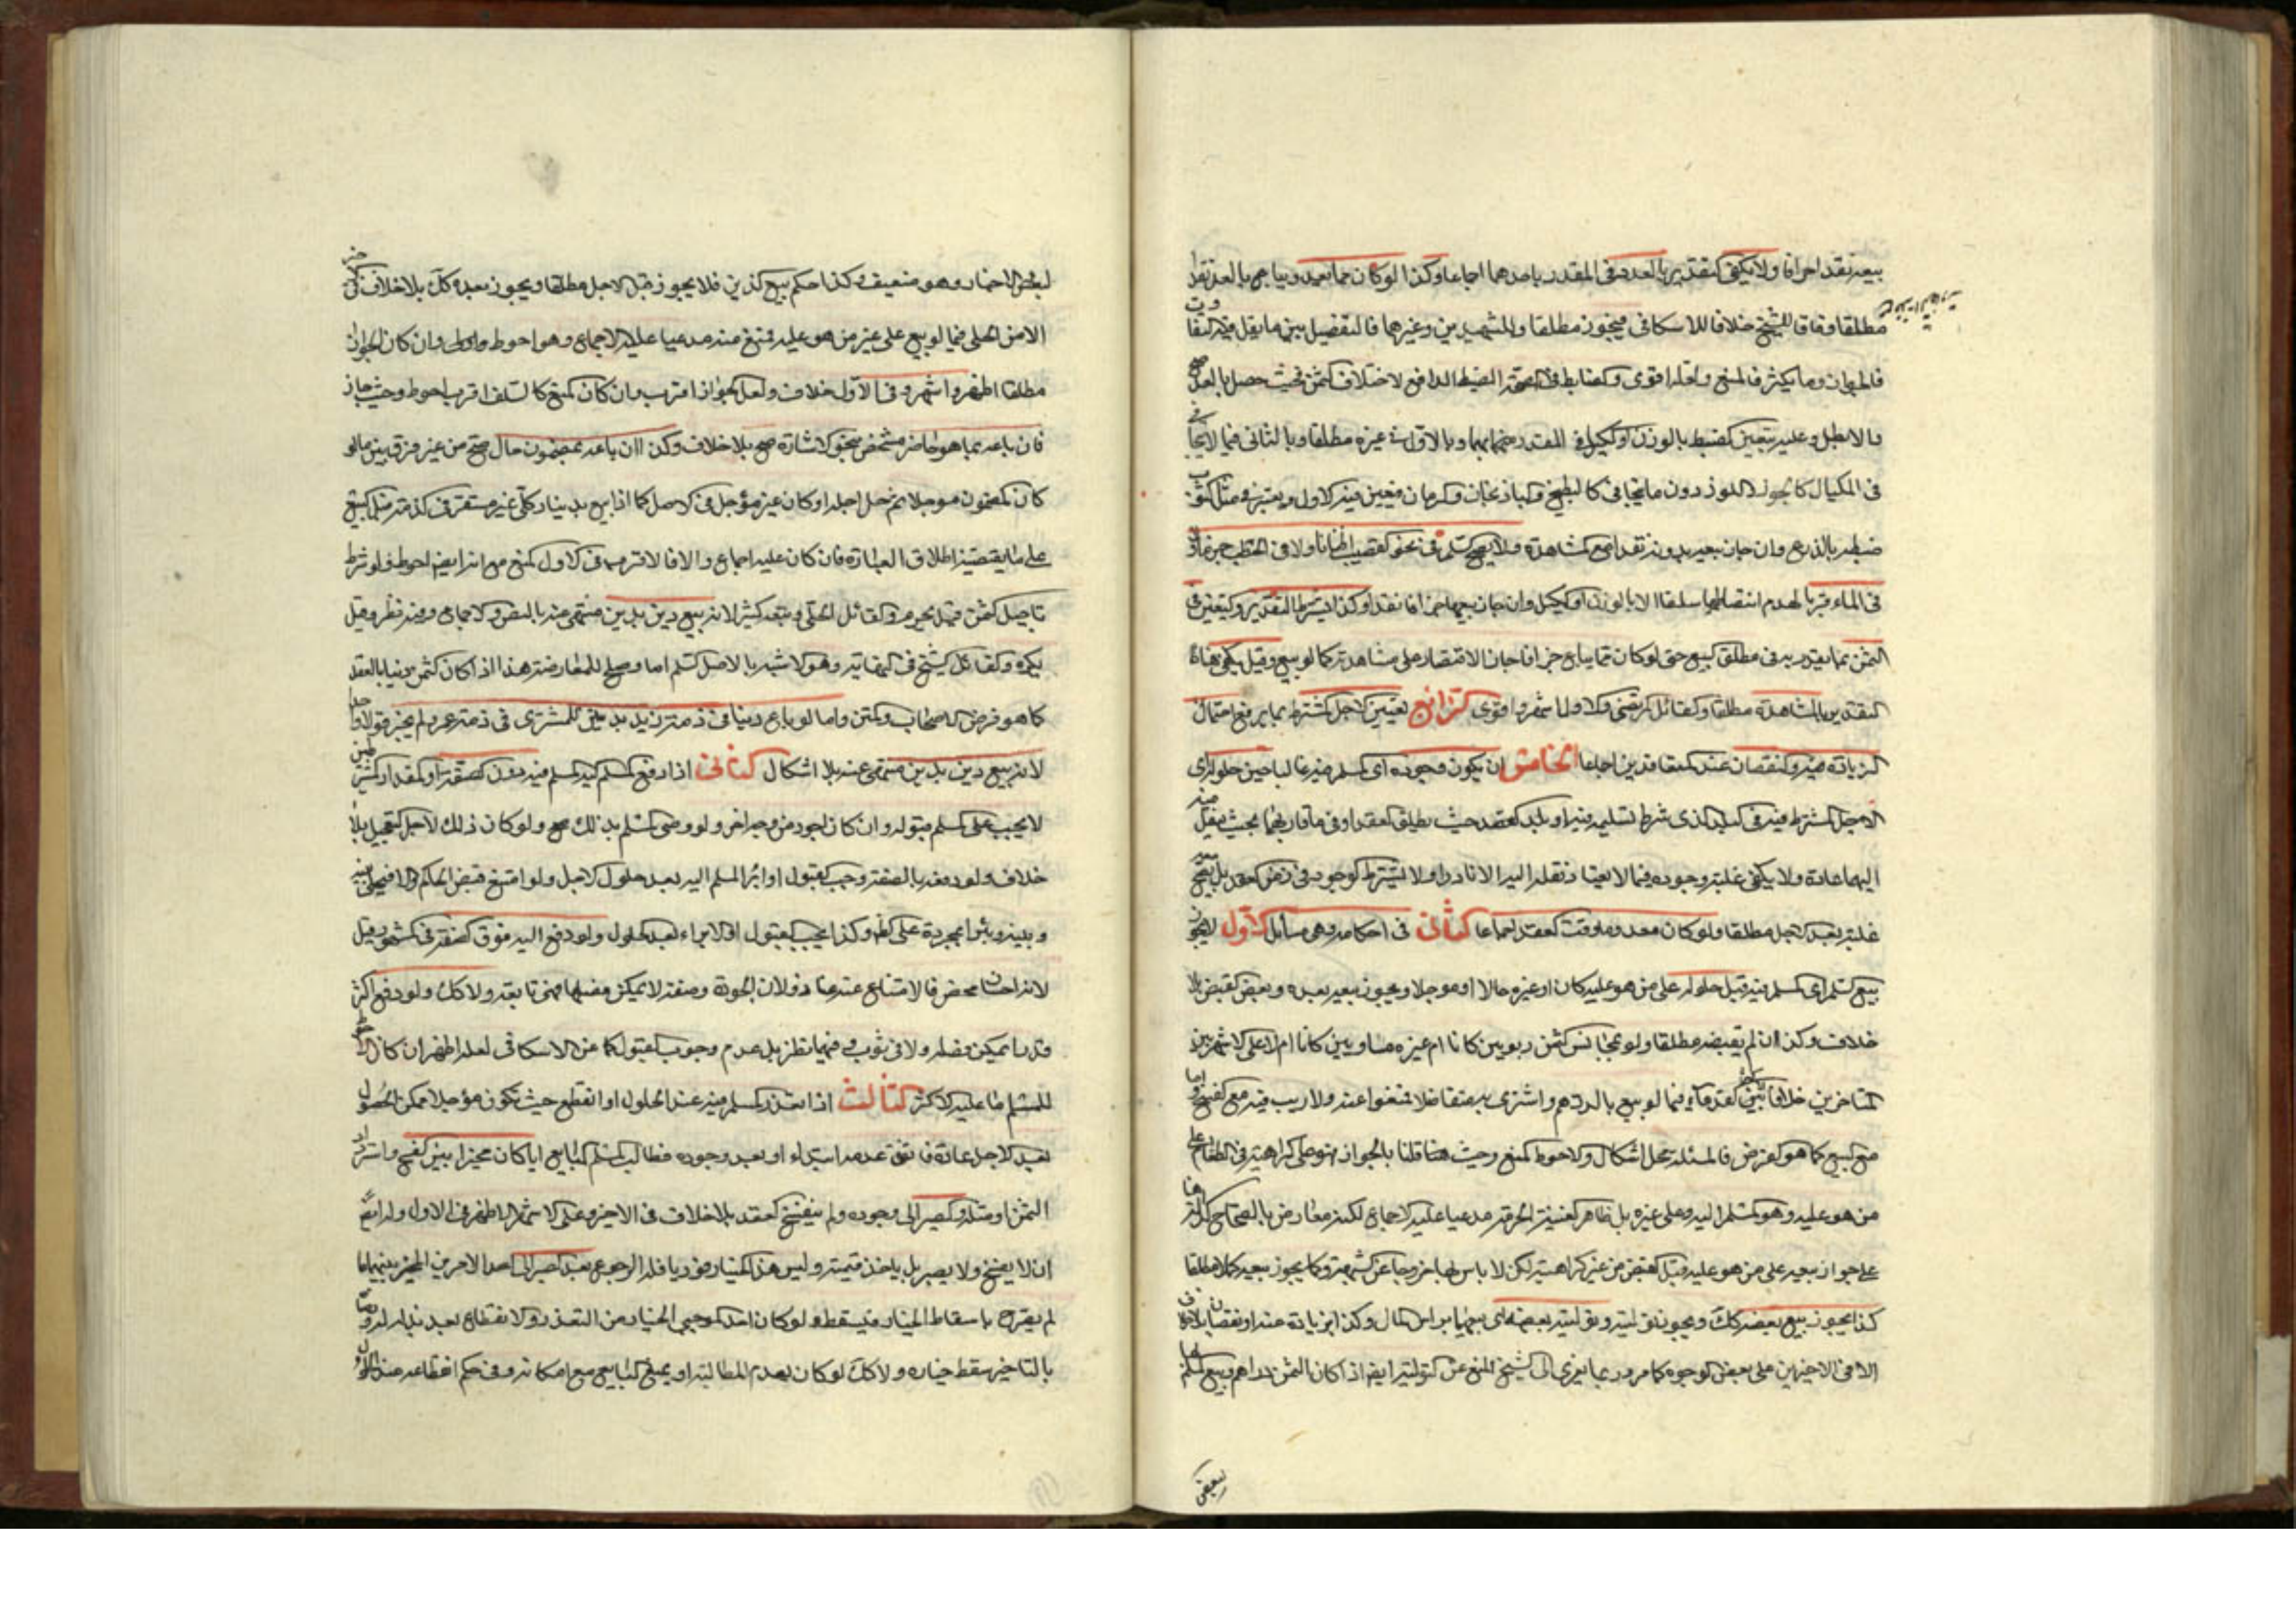 بيعه نقدا جزافا ولا يكفى التقدير بالعدد فى المقدر باحدهما اجماعا وكذا لو كان مما يعد ويباع بالعد نقدا
مطلقا وفاقا للشيخ خلافا للاسكافى فيجوز مطلقا والشهيدين وغيرهما فالتفصيل بين ما يقل فيه التفاوت
فالجواز وما يكثر فالمنع ولعله اقوى والضابط فى الصحة الضبط الدافع لاختلاف الثمن فحيث حصل بالعد صح
والا بطل وعليه يتعين الضبط بالوزن او الكيل فى المقدر بهما وبالاول فى غيره مطلقا وبالثانى فيما لا يتجافى
فى المكيال كالجوز واللوز دون ما يتجافى كالبطيخ والباذنجان والرمان فيعين فيه الاول ويعتبر فى مثل الثوب
ضبطه بالذرع وان جاز بيعه بدونه نقدا مع المشاهدة ولا يصح السلم فى نحو القصب اطنانا ولا فى الحطب حزما ولا
فى الماء قربا لعدم انضباطها سلفا الا بالوزن او الكيل وان جاز بيعها جزافا نقدا وكذا يشترط التقدير والتعين فى
الثمن بما يقدر به فى مطلق البيع حتى لو كان مما يباع جزافا جاز الاقتصار على مشاهدته كما لو بيع وقيل يكفى هنا
التقدير بالمشاهدة مطلقا والقائل المرتضى والاول اشهر واقوى الرابع تعيين الاجل المشترط بما يرفع احتمال
الزيادة فيه والنقصان عند المتعاقدين اجماعا الخامس ان يكون وجوده اى المسلم فيه غالبا حين حلول اى
الاجل المشترط فيه فى البلد الذى شرط تسليمه فيه او بلد العقد حيث يطلق العقد او فى ما قاربهما بحيث ينقل منه
اليهما عادة ولا يكفى غلبة وجوده فيما لا يعتاد نقله اليه الا نادرا ولا يشترط الوجود فى زمن العقد بل يصح مع
غلبته بعد الاجل مطلقا ولو كان معدوما وقت العقد اجماعا الثانى فى احكامه وهى مسائل الاول لا يجوز
بيع السلم اى المسلم فيه قبل حلوله على من هو عليه كان او غيره حالا او موجلا ويجوز بيعه بعده وبعض القبض بلا
خلاف وكذا ان لم يقبضه مطلقا ولو بمجانس الثمن ربويين كانا ام غيره مساويين كانا ام لا على الاشهر بين
المتاخرين خلافا لبعض القدماء فيما لو بيع بالدرهم واشترى به متفاضلا فمنعوا عنه ولا ريب فيه مع الفسخ واما
مع البيع كما هو الفرض فالمسئلة محل اشكال والاحوط المنع وحيث هنا قلنا بالجواز فهو على كراهية فى الطعام على
من هو عليه وهو المسلم اليه وعلى غيره بل ظاهر الغنية الحرمة مدعيا عليه الاجماع لكنه معارض بالصحاح الدالة
على جواز بيعه على من هو عليه قبل القبض من غير كراهية لكن لا باس بها خروجا عن الشبهة وكما يجوز بيعه كملا مطلقا
كذا يجوز بيع بعضه كك ويجوز توليته وتولية بعضه اى بيعها براس المال وكذا بزيادة عنه او نقصان بلا خلاف
الا فى الاخيرين على بعض الوجوه كما مر وربما يعزى الى الشيخ المنع عن التولية ايضا اذا كان الثمن دراهم وبيع السلم بها
لبعض
لبعض الاخبار وهو ضعيف وكذا حكم بيع الدين فلا يجوز قبل الاجل مطلقا ويجوز بعده كك بلا خلاف
الا من الحلى فيما لو بيع على غير من هو عليه فمنع منه مدعيا عليه الاجماع وهو احوط واولى وان كان الجواز
مطلقا اظهر واشهر وفى الاول خلاف ولعل الجواز اقرب وان كان المنع كالسلف اقرب احوط وحيث جاز
فان باعه بما هو حاضر مشخص بنحو الاشارة صح بلا خلاف وكذا ان باعه بمضمون حال صح من غير فرق بين ما لو
كان المضمون موجلا ثم حل اجله او كان غير مؤجل فى الاصل كما اذا بيع بدينار كلى غير مستقر فى الذمة قبل البيع
على ما يقتضيه اطلاق العبارة فان كان عليه اجماع والا فالاقرب فى الاول المنع مع انه ايضا احوط ولو شرط
تاجيل الثمن قيل يحرم والقائل الحلى وتبعه كثير لانه بيع دين بدين منهى عنه بالنص والاجماع وفيه نظر وقيل
يكره والقائل الشيخ فى النهاية وهو الاشبه بالاصل السلم اما وصلح للمعارضة هذا اذا كان الثمن دينا بالعقد
كما هو فرض الاصحاب والمتن واما لو باع دينا فى ذمة زيد بدين للمشترى فى ذمة عمرو لم يجز قولا واحدا
لانه بيع دين بدين منهى عنه بلا اشكال الثانى اذا دفع المسلم اليه المسلم فيه دون الصفة او المقدار المشترطين
لا يجب على المسلم قبوله وان كان اجود من وجه اخر ولو رضى المسلم بذلك صح ولو كان ذلك لاجل التعجيل بلا
خلاف ولو دفعه بالصفة وجب القبول او ابراء المسلم اليه بعد حلول الاجل ولو امتنع قبض الحاكم والا فيخلى بينه
وبينه ويبرا بمجرده على الاظهر وكذا يجب القبول او الابراء بعد الحلول ولو دفع اليه فوق الصفة فى المشهور وقيل
لا لانه احسان محض فالامتناع عنه عناد ولان الجودة صفة لا يمكن فصلها فهى تابعة ولا كك ولو دفع اكثر
قدرا يمكن فصله ولا فى ثوب وفيهما نظر بل عدم وجوب القبول كما عن الاسكافى لعله اظهر ان كان الاحوط
للمسلم ما عليه الاكثر الثالث اذا تعذر المسلم فيه عند الحلول او انقطع حيث يكون مؤجلا ممكن الحصول
بعد الاجل عادة فاتفق عدمه ابتداء او بعد وجوده فطالب المسلم البايع اياه كان مخيرا بين الفسخ واسترداد
الثمن او مثله والصبر الى وجوده ولم ينفسخ العقد بلا خلاف فى الاخير وعلى الاشهر الاظهر فى الاول وله ايضا
ان لا يفسخ ولا يصبر بل ياخذ قيمته وليس هذا الخيار فوريا فله الرجوع بعد الصبر الى احد الامرين المخير بينهما ما
لم يصرح باسقاط الخيار فيسقط ولو كان احد موجبى الخيار من التعذر والانقطاع بعد بذله له ورضا
بالتاخير سقط خياره ولا كك لو كان بعدم المطالبة او بمنع البايع مع امكانه وفى حكم انقطاعه عند الحلول